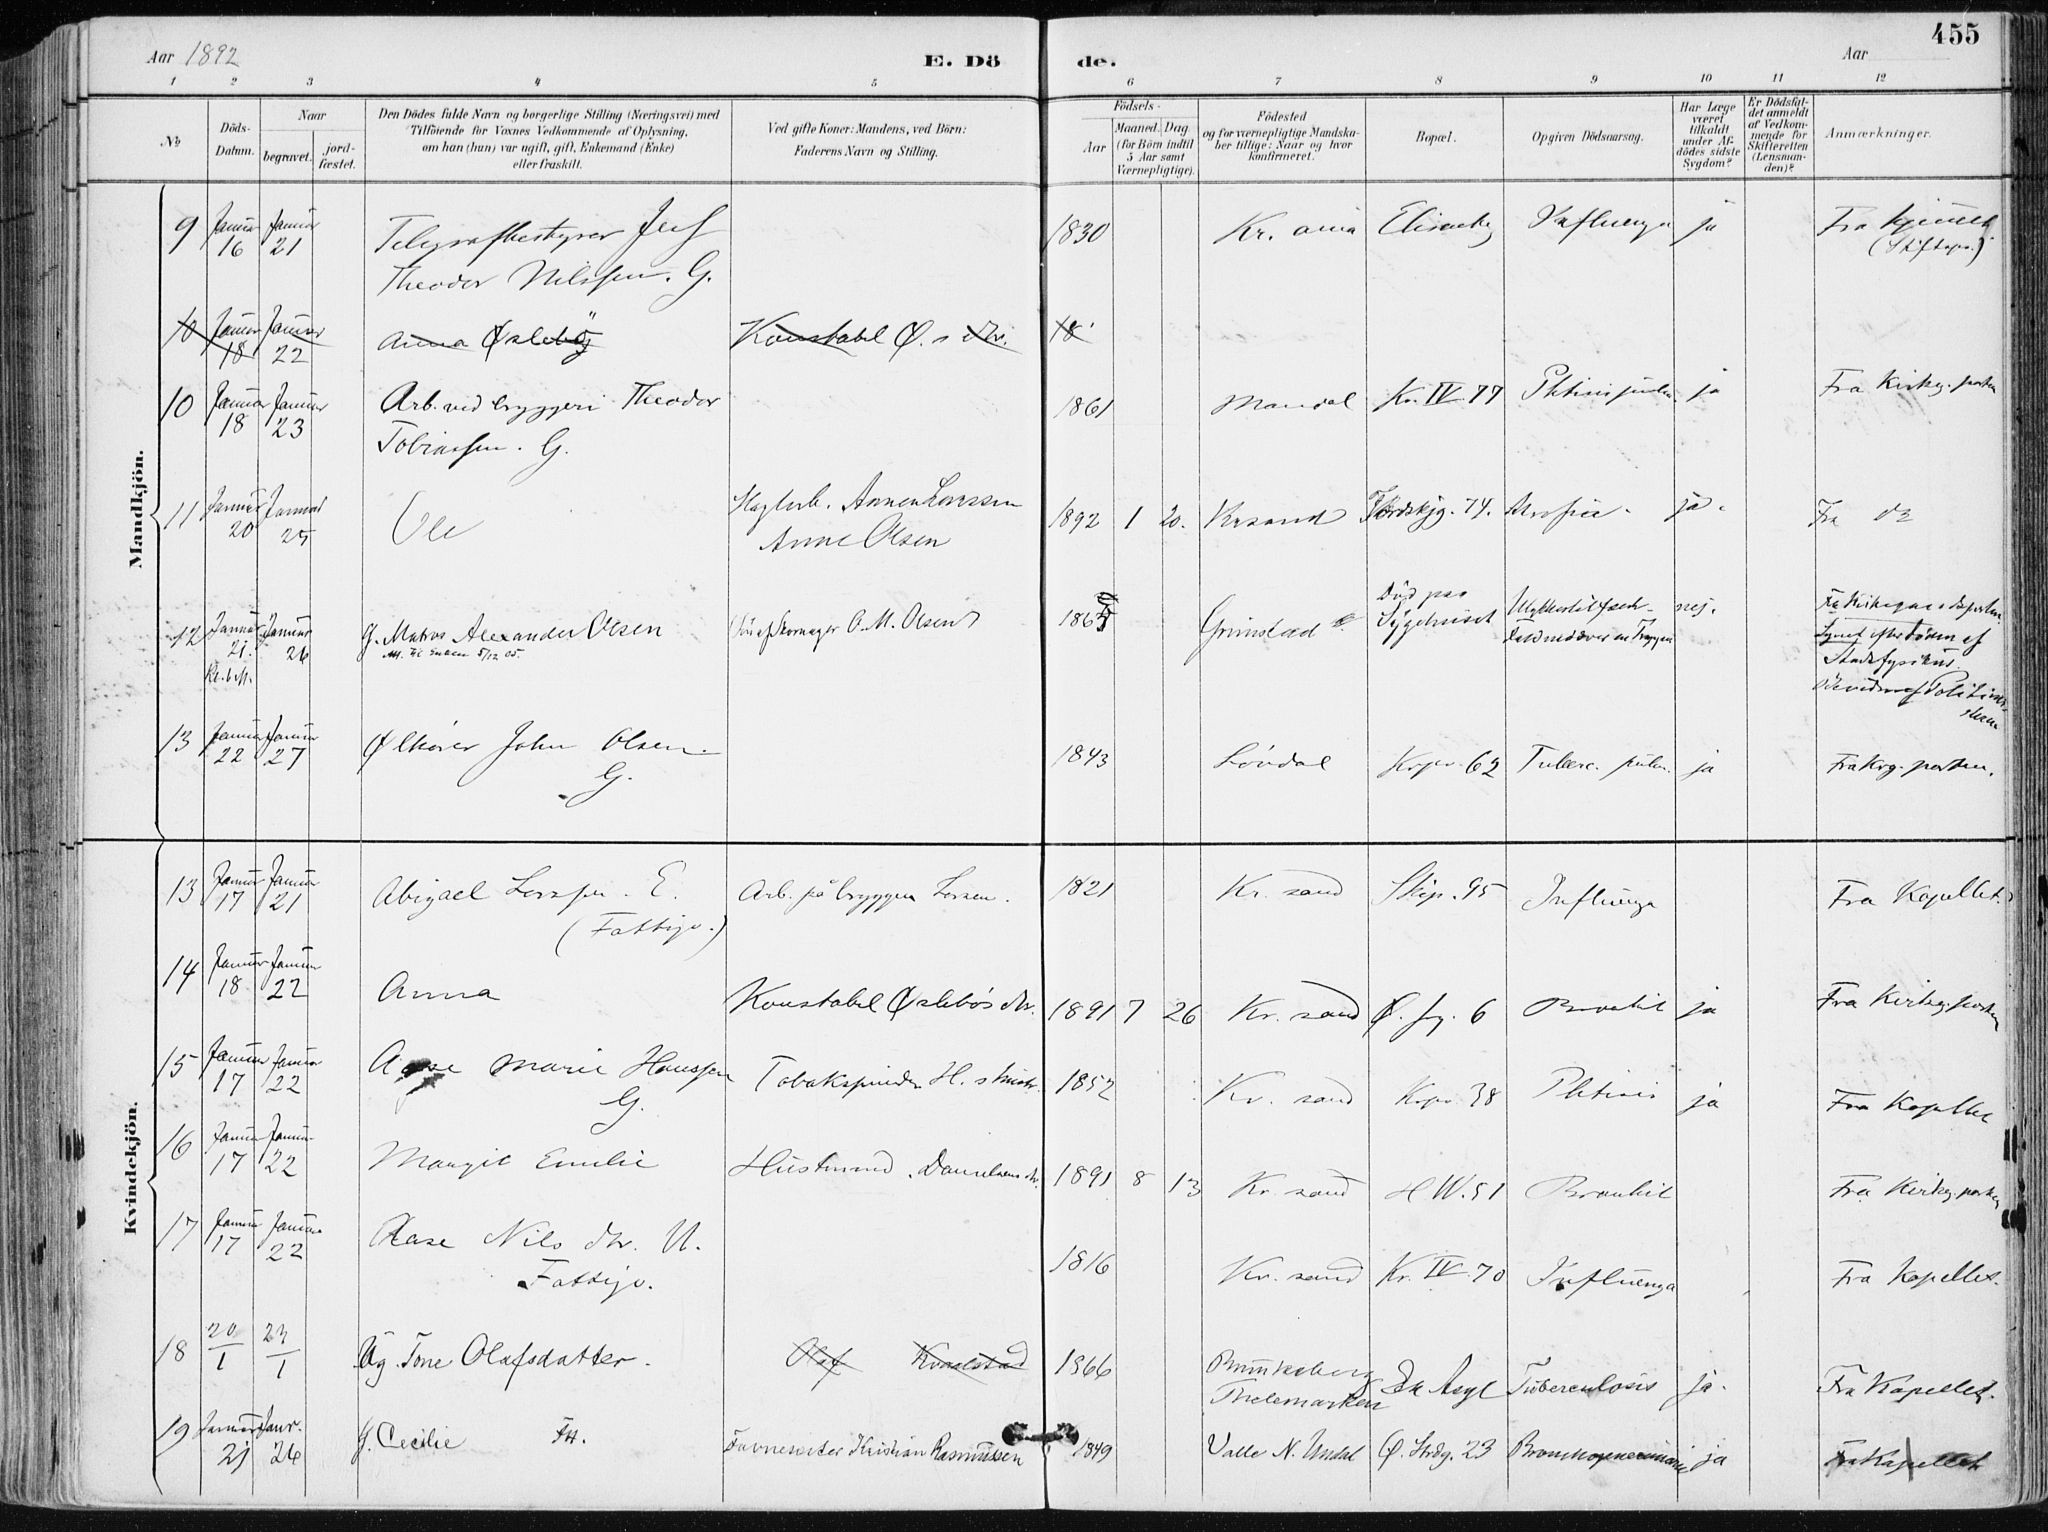 455
Aar 1892 E. Dö de. Aar
1 2 3 4 5 6 7 8 9 10 11 12
No
Döds-Datum.
Naar
begravet.
jord-fæstet.
Den Dödes fulde Navn og borgerlige Stilling (Næringsvei) med
Tilföiende for Voxnes Vedkommende af Oplysning,
om han (hun) var ugift, gift, Enkemand (Enke)
eller fraskilt.
Ved gifte Koner: Mandens, ved Börn:
Faderens Navn og Stilling.
Födsels-
Aar
Maaned. Dag
(for Börn indtil
5 Aar samt
Værnepligtige).
Födested
og for værnepligtige Mandska-
ber tillige: Naar og hvor
konfirmeret.
Bopæl.
Opgiven Dödsaarsag.
Har Læge
været
tilkaldt
under Af-
dödes sidste
Sygdom?
Er Dödsfal-
det anmeldt
af Vedkom-
mende for
Skifteretten
(Lensman-
den)?
Anmærkninger.
Mandkjön.
9 Januar 16 Januar 21 Telegrafbestyrer Jens 1830 Kr. ania Elisenbg Influenza ja Fra hjemmet
Theodor Nilssen. G. (Stiftspr.)
10 Januar 18 Januar 22 Anna Öslebög Konstabel Ø.s dtr. 18
10 Januar 18 Januar 23 Arb. ved bryggeri Theodor 1861 Mandal Kr. IV. 77 Phtisis pulm. ja Fra Kirkeg. porten
Tobiassen. G.
11 Januar 20 Januar 25 Ole 1892 1 20. Krsand 74. Atrofia. ja. Fra do
Anne Olsen
12 Januar 21. Januar 26 G. Matros Alexander Olsen Skomager O. M. Olsen 186 Grimstad Død paa Sygehuset nej.
13 Januar 22 Januar 27 Ølkører John Olsen. 1843 Løvdal Krpo. 62 Tuberc. pulm. ja Fra Krg. porten.
G.
Kvindekjön.
13 Januar 17 Januar 21 Abigael Larssen. E. Arb. på bryggen Larsen. 1821 Kr. sand Skip. 95 Influenza Fra Kapellet.
(Fattigv.)
14 Januar 18 Januar 22 Anna Konstabel Øslebøs dtr. 1891 7 26 Kr. sand Ø. 6 Bronkit ja Fra Kirkeg. porten
15 Januar 17 Januar 22 Aase Marie Hanssen Tobakspinder H. s hustr. 1852 Kr. sand Krpo. 38 Phtisis ja Fra Kapellet
G.
16 Januar 17 Januar 22 Margit Emilie Husmand Danielsens dtr. 1891 8 13 Kr. sand H W. 51 Bronkit Fra Kirkeg. porten
17 Januar 17 Januar 22 Aase Nils dtr. U. 1816 Kr. sand Kr. IV. 70 Influenza Fra Kapellet.
Fattigv.
18 20/1 23/1 Ug. Tone Olafsdatter. Olaf 1866 Brunkeberg Thelemarken Dk Asyl Tuberculosis ja. Fra Kapellet.
19 Januar 21 Janr. 26 G. Cecilie Kristian Rasmussen 1849 Valle N. Undal Ø. Strdg. 23 Bronchopneumonie ja Fra Kapellet